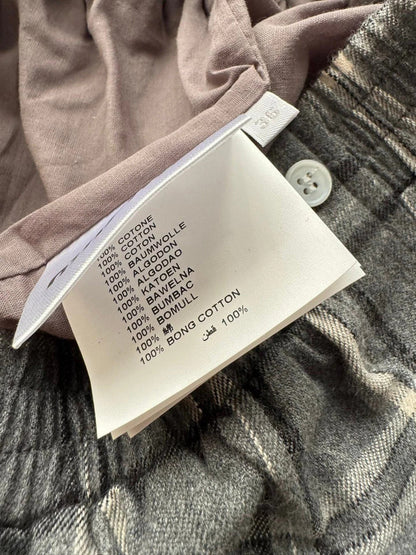 36
100% COTONE
100% COTTON
100% COTON
100% BAUMWOLLE
100% ALGODON
100% ALGODAO
100% KATOEN
100% BAWELNA
100% BUMBAC
100% BOMULL
100% 棉
100% قطن
100% BONG COTTON